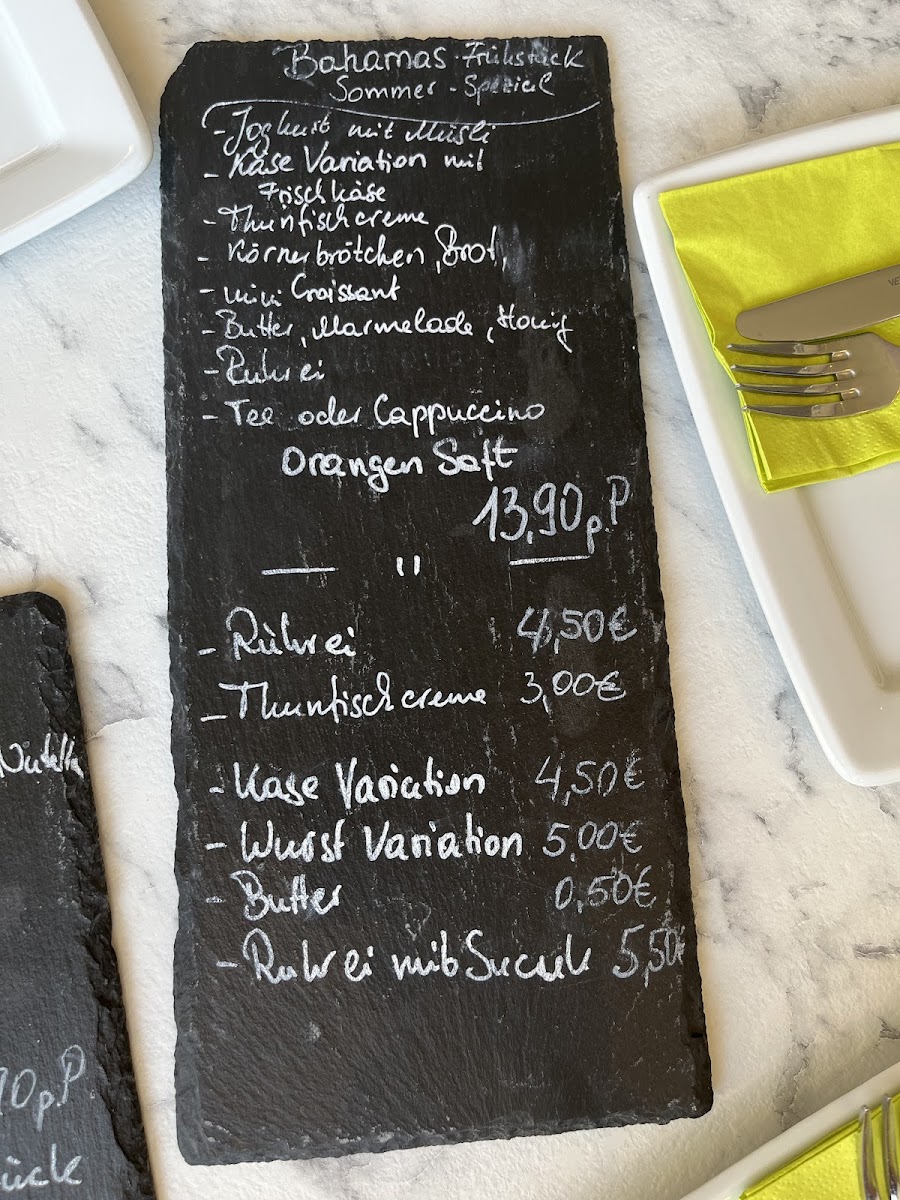 Bahamas-Frühstück
Sommer-Spezial
- Joghurt mit Müsli
- Käse Variation mit
Frischkäse
- Thunfischcreme
- Körnerbrötchen, Brot,
- mini Croissant
- Butter, Marmelade, Honig
- Rührei
- Tee oder Cappuccino
Orangen Saft
13,90 p.P
— " —
- Rührei 4,50€
- Thunfischcreme 3,00€
- Käse Variation 4,50€
- Wurst Variation 5,00€
- Butter 0,50€
- Rührei mit Sucuk 5,50€
Nutella
90 p.P
ück